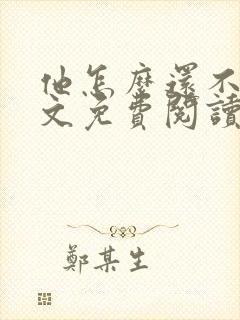 他怎麼還不
文免費閱讀
鄭某生